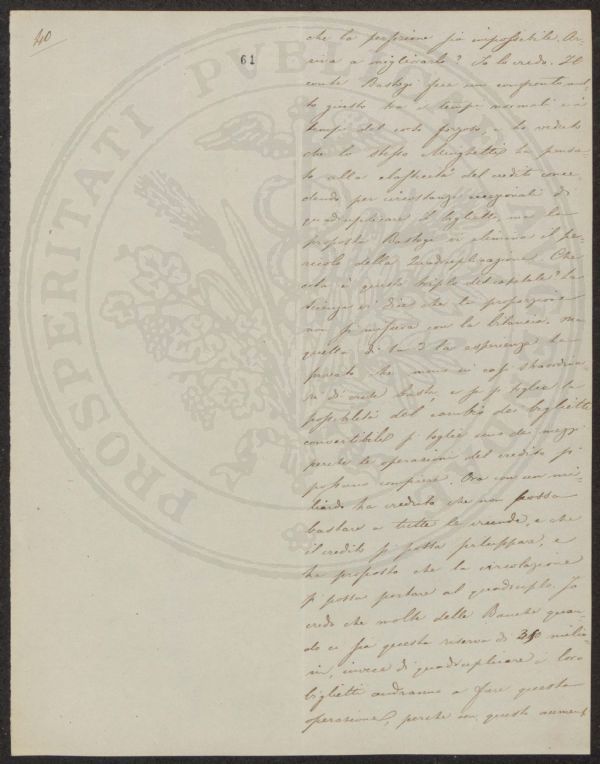 40
61
PROSPERITATI PVBLICAE
che la perfezione sia impossibile. Ar-
riva a migliorarlo? Io lo credo. Il
conte Bastogi fece un confronto
questo tra i tempi normali e i
tempi del corso forzoso, e ho veduto
che lo stesso Minghetti ha pensa-
to alla elasticità del credito conce
dendo per circostanze eccezionali di
quadruplicare il biglietto, ma la
proposta Bastogi vi elimina il pe-
ricolo della quadruplicazione. Che
cosa è questo triplo del capitale? La
scienza vi dice che la proporzione
non si misura con la bilancia, ma
quella di 1 a 3 la esperienza ha
provato che meno in casi straordina-
ri di crisi basta, e se si toglie la
possibilità del cambio dei biglietti
convertibili si toglie uno dei mezzi
perché le operazioni del credito si
possano compiere. Ora con un mi-
liardo ha creduto che non possa
bastare a tutte le vicende, e che
il credito si possa sviluppare, e
ha proposto che la circolazione
si possa portare al quadruplo. Io
credo che molte delle Banche quan-
do ci sia questa riserva di milio-
ni, invece di quadruplicare i loro
biglietti andranno a fare questa
operazione, perché con questo aumen